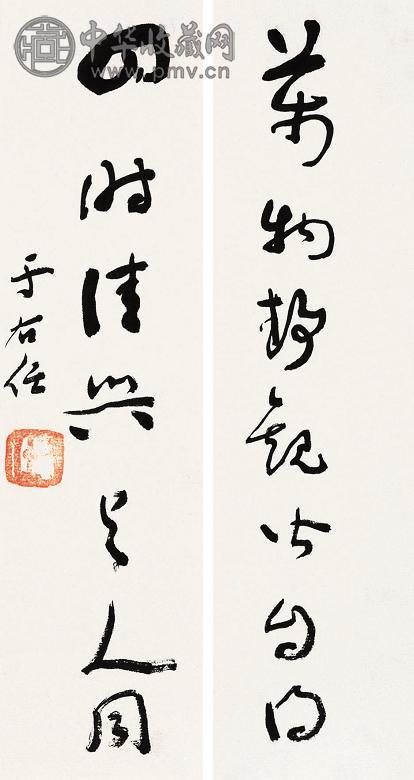 万物静观皆自得
四时佳兴与人同
于右任
中华收藏网
www.pmv.cn